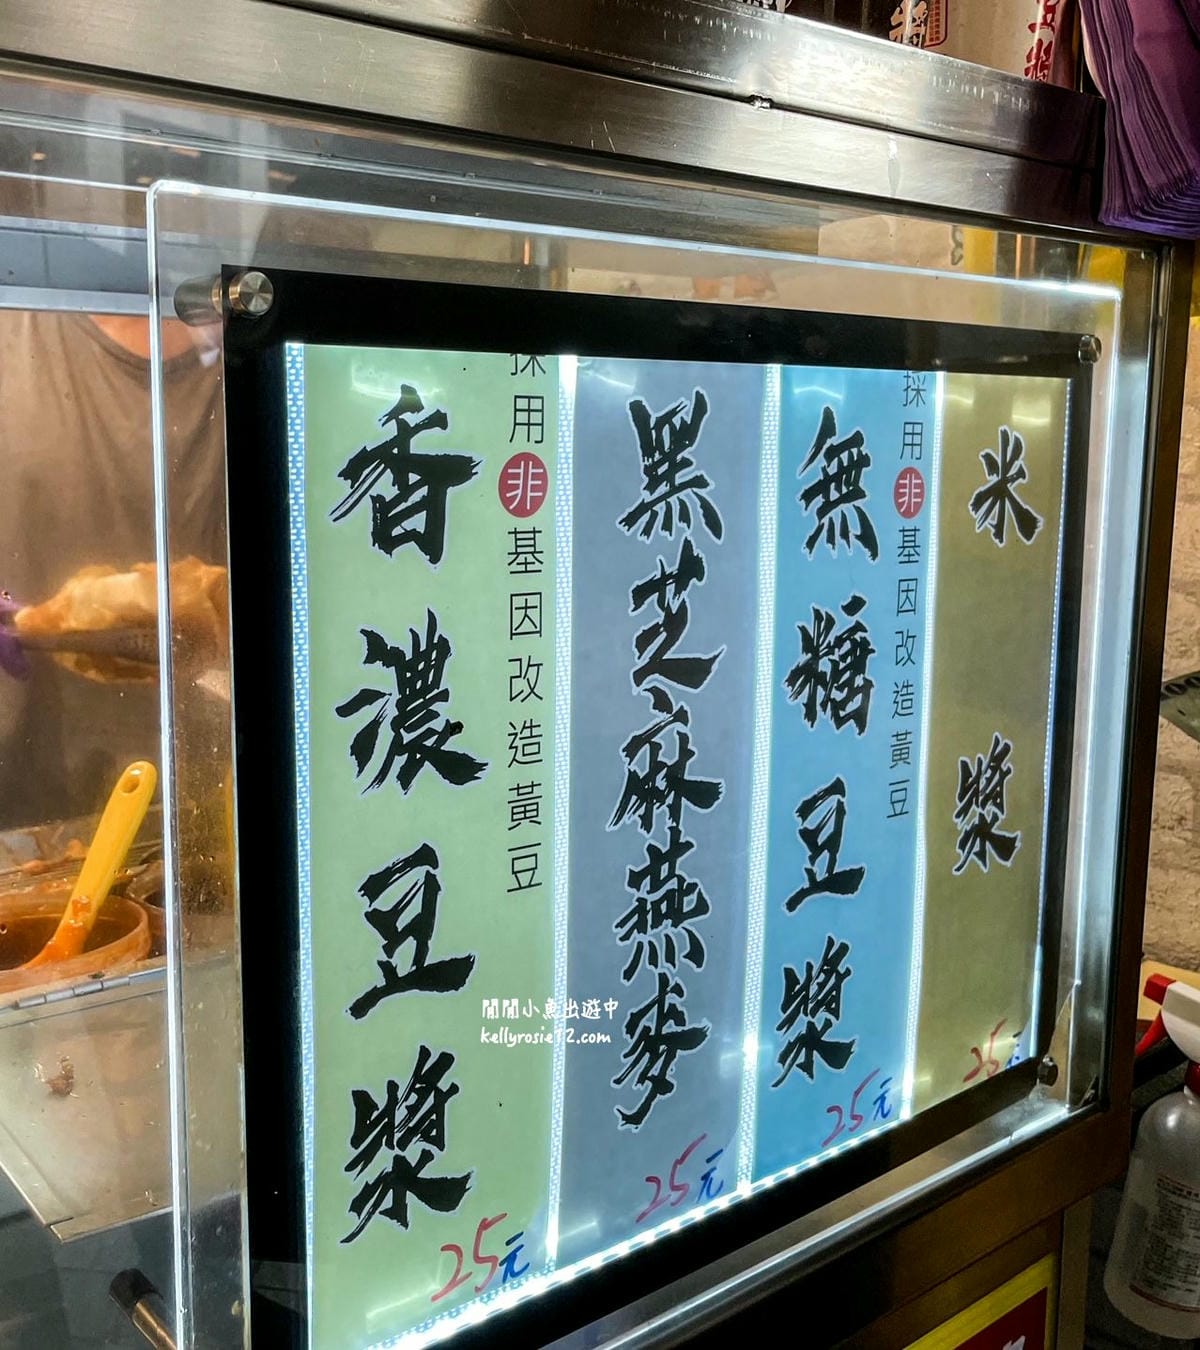 香濃豆漿
採用非基因改造黃豆
25元
黑芝麻燕麥
25元
無糖豆漿
採用非基因改造黃豆
25元
米漿
25元
閒閒小魚出遊中
kellyrosie12.com